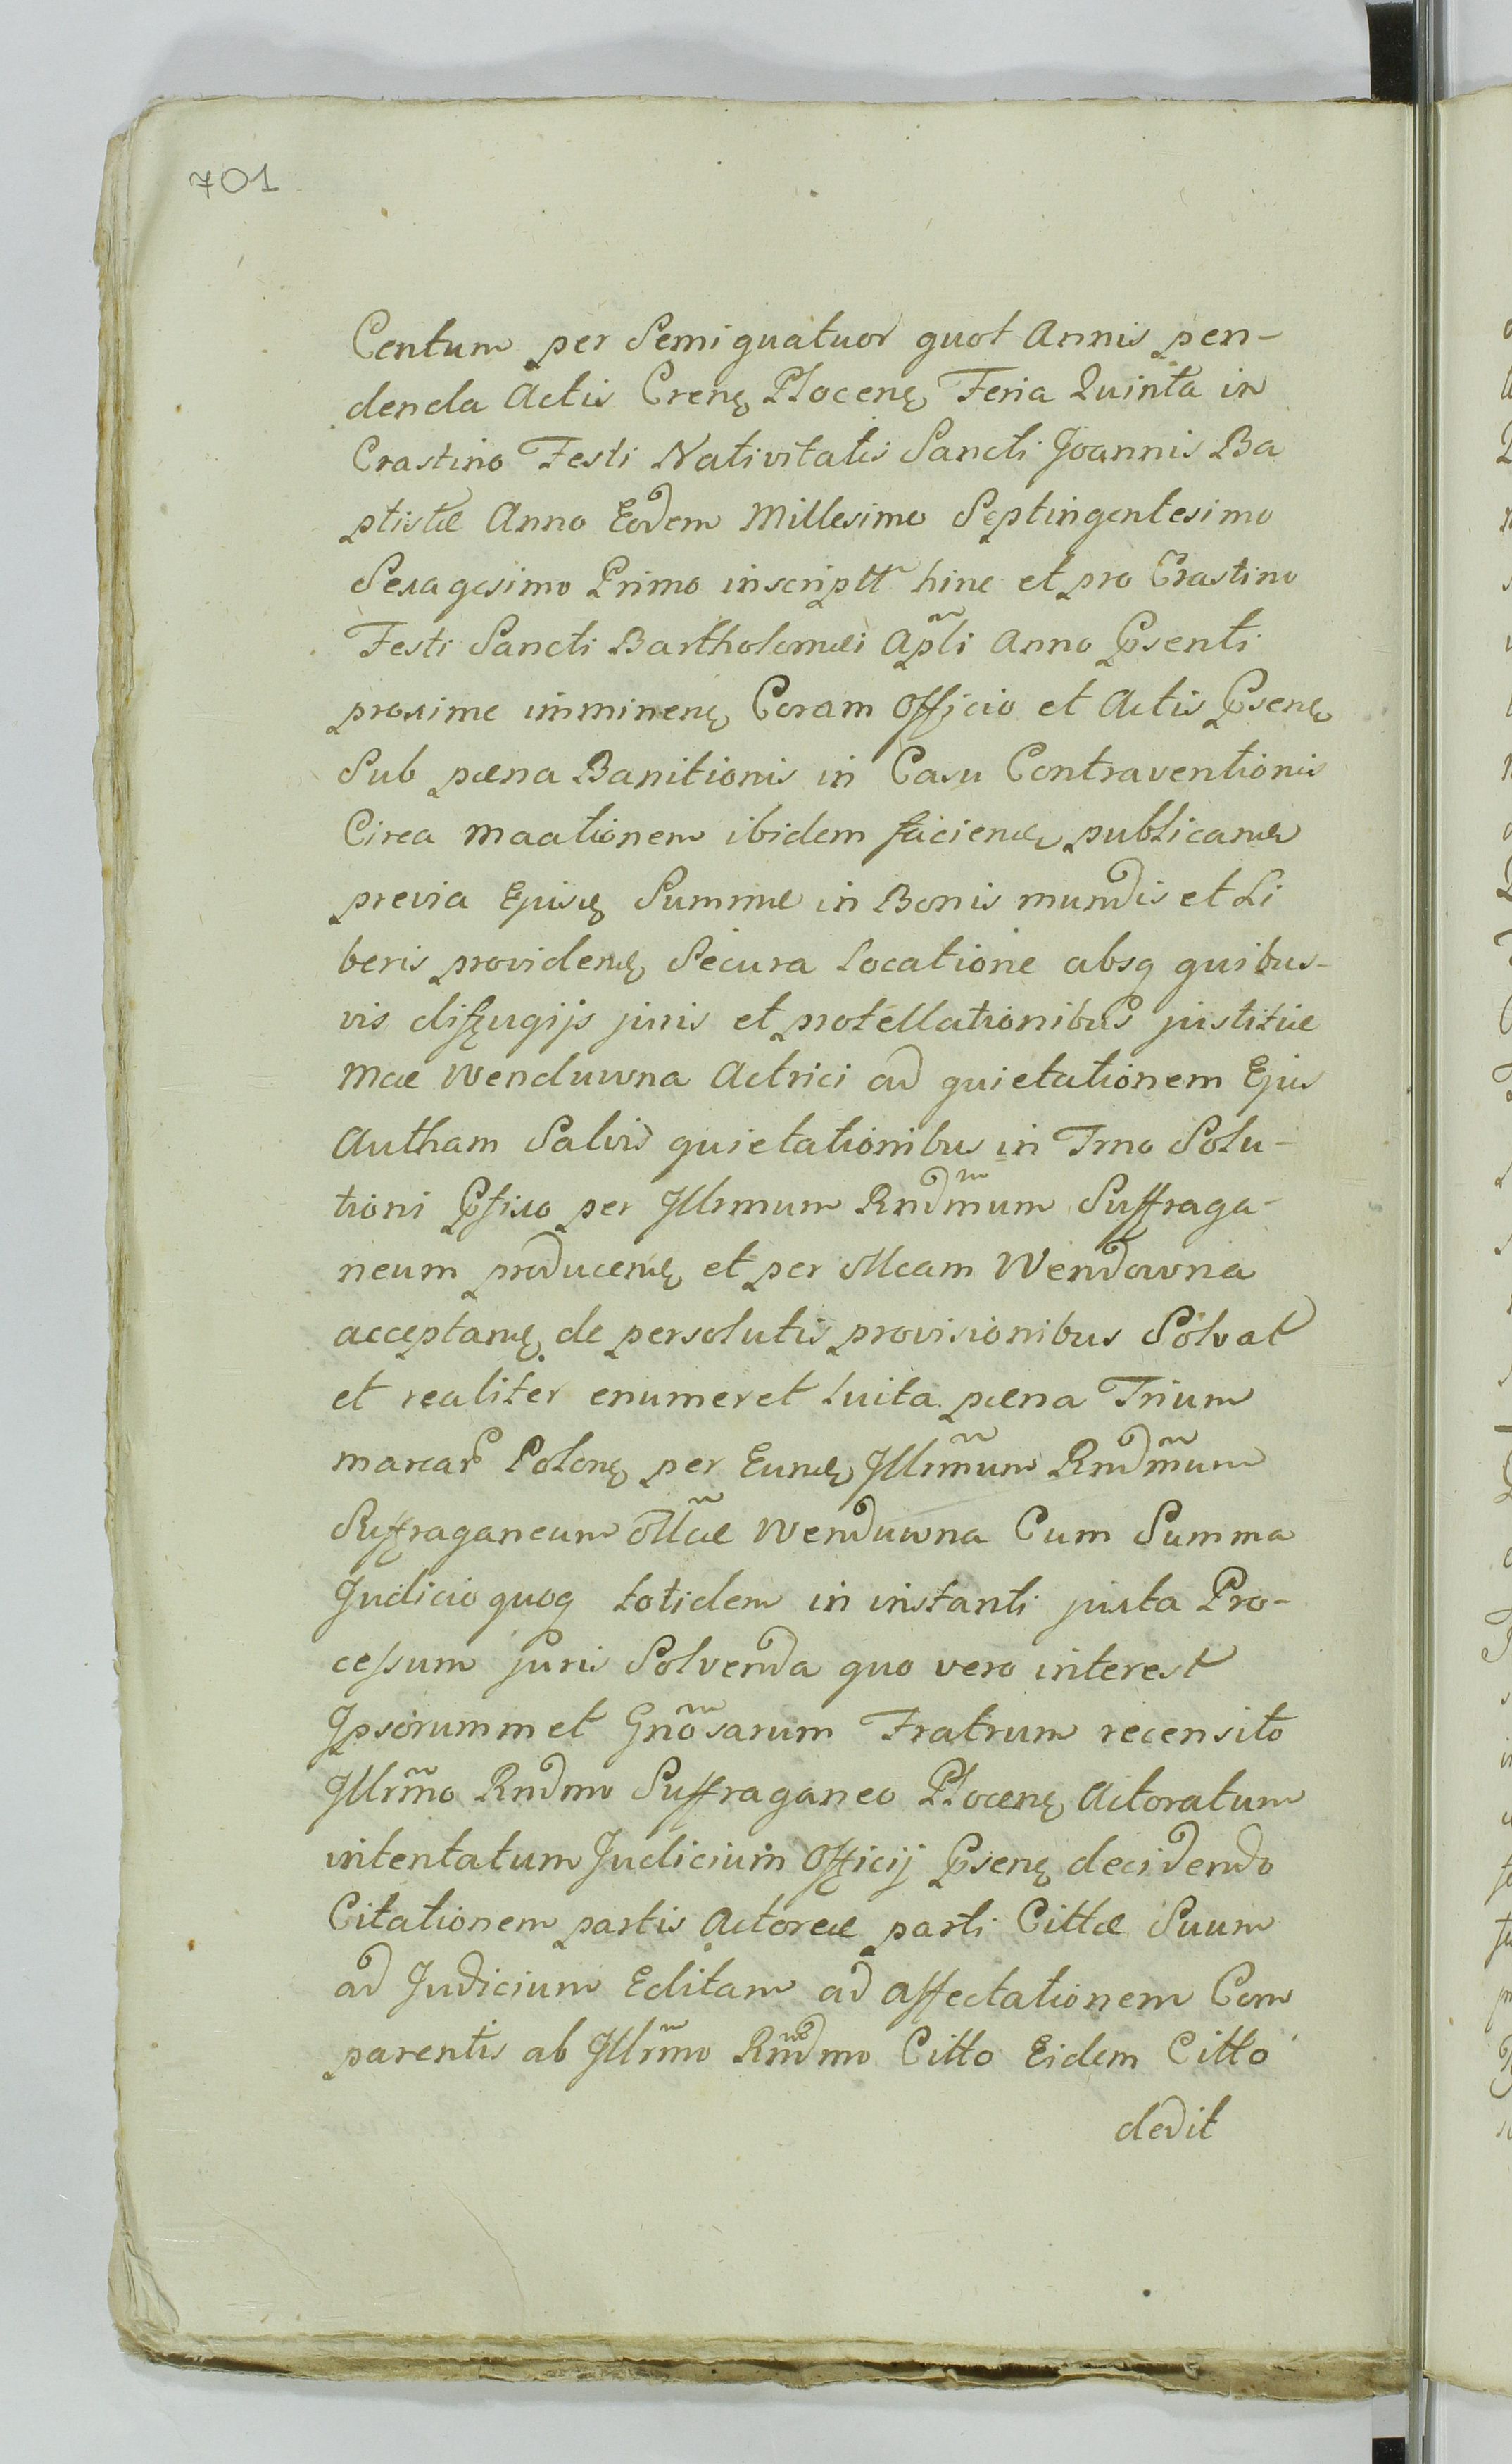 701
Centum per Semiquatuor quot Annis pen-
denda Actis Crenę Plocenę Feria Quinta in
Crastino Festi Nativitatis Sancti Joannis Ba
ptistæ Anno Eodem Millesimo Septingentesimo
Sexagesimo Primo inscriptt hinc et pro Crastino
Festi Sancti Bartholomæi Apli Anno Psenti
proxime imminenę Coram Officio et Actis Psenę
Sub pæna Banitionis in Casu Contraventionis
Circa maationem ibidem faciendę publicandę
previa Ejusdę Summæ in Bonis mundis et Li
beris providendę Secura Locatione absq quibus-
vis diffugijs juris et protellationibus justitiæ
Mae Wenduwna Actrici ad quietationem Ejus
Autham Salvis quietationibus in Trno Solu-
tioni Pfixo per Jllrmum Rndmum Suffraga-
neum producendę et per Mcam Wendowna
acceptandę de persolutis provisionibus Solvat
et realiter enumeret luita pæna Trium
marcar Polonę per Eundę Jllrmum Rndmum
Suffraganeum Mcæ Wenduwna Cum Summa
Judicio quoq totidem in instanti juxta Pro-
cessum juris Solvenda quo vero interest
Jpsorummet Gnosarum Fratrum recensito
Jllrmo Rndmo Suffraganeo Plocenę Actoratum
intentatum Judicium Officij Psenę decidendo
Citationem partis Actoreæ parti Cittæ Suum
ad Judicium Editam ad affectationem Com
parentis ab Jllrmo Rndmo Citto Eidem Citto
dedit